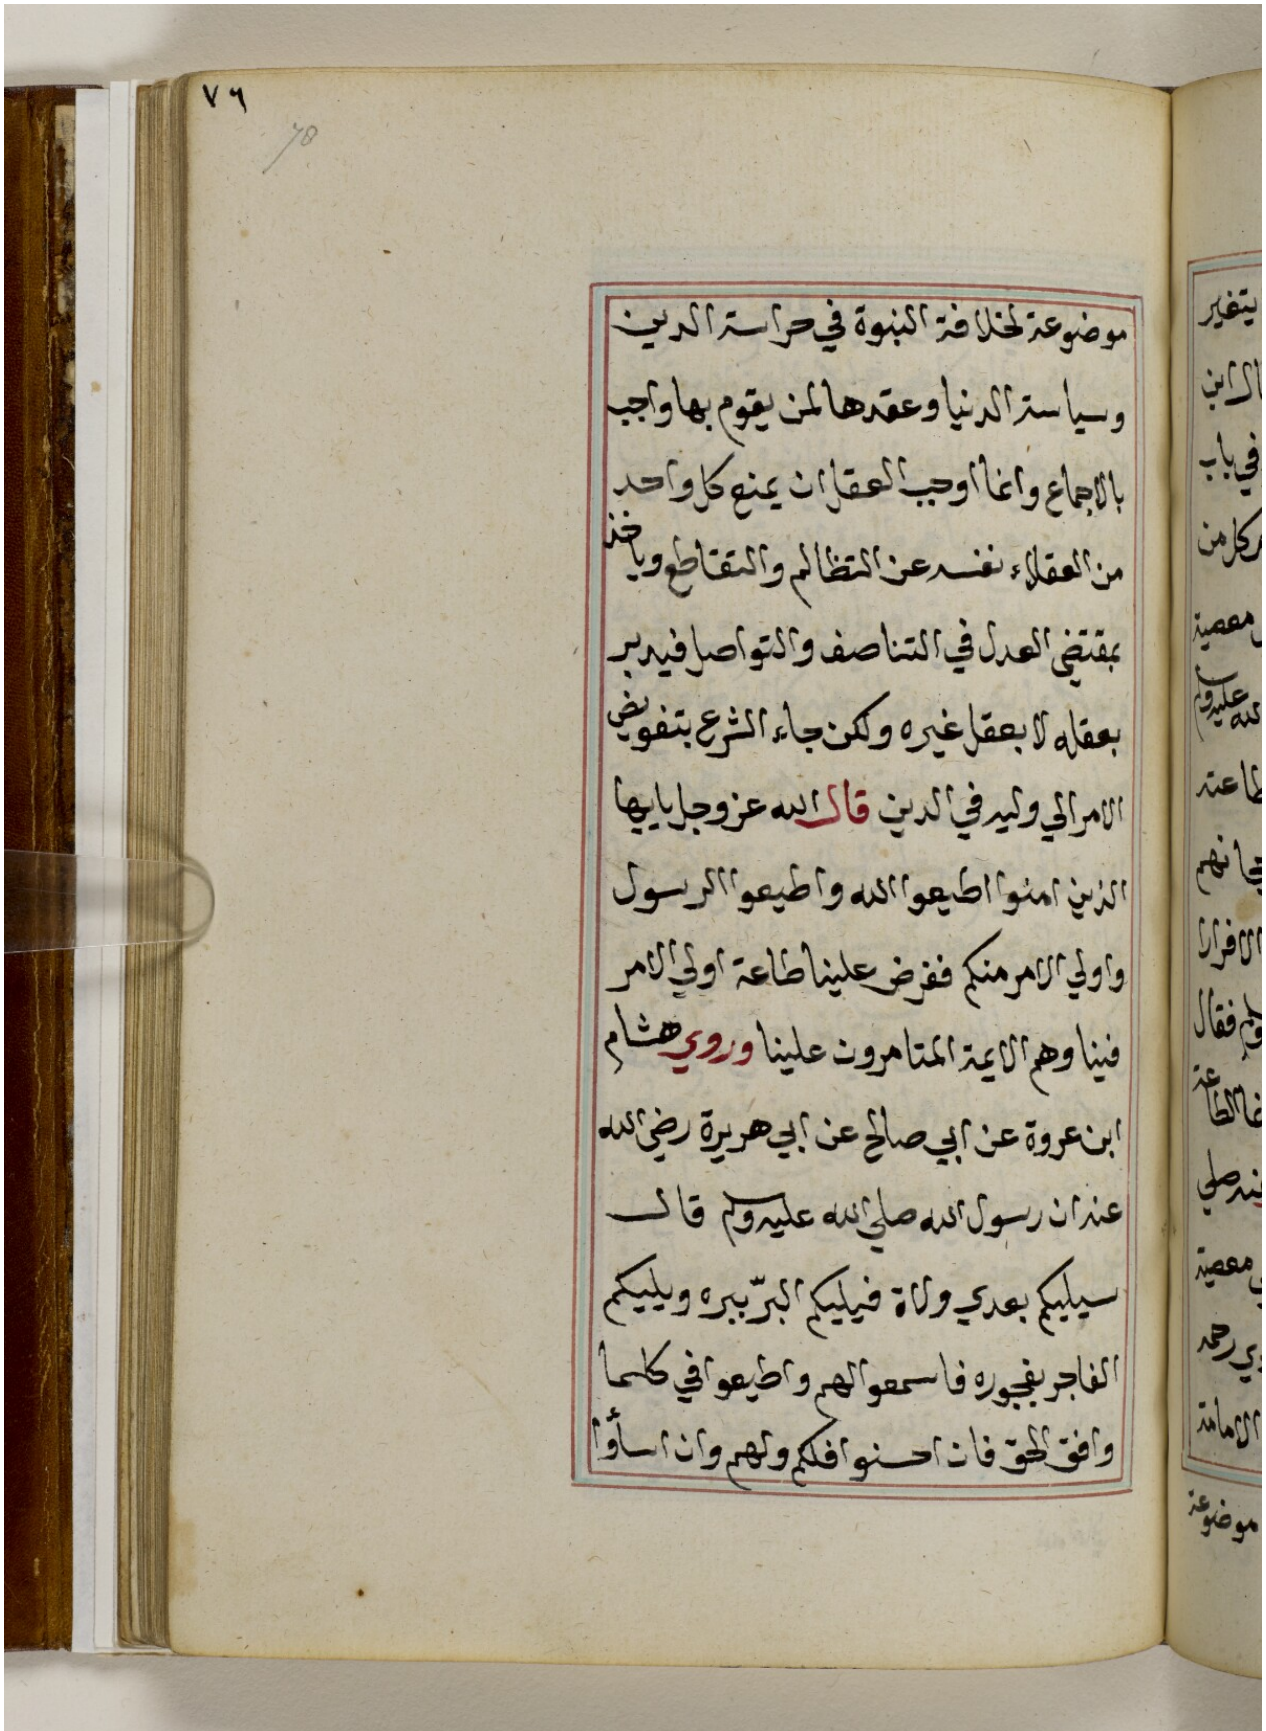 ٧٦
موضوعة لخلافة النبوة في حراسة الدين
وسياسة الدنيا وعقدها لمن يقوم بها واجب
بالاجماع وانما اوجب العقل ان يمنع كل واحد
من العقلاء نفسه عن التظالم والتقاطع وياخذ
بمقتضى العدل في التناصف والتواصل فيدبر
بعقله لا بعقل غيره ولكن جاء الشرع بتفويض
الامر الي وليه في الدين قال الله عز وجل يايها
الذين امنوا اطيعوا الله واطيعوا الرسول
واولي الامر منكم ففرض علينا طاعة اولي الامر
فينا وهم الايمة المتامرون علينا وروي هشام
ابن عروة عن ابي صالح عن ابي هريرة رضي الله
عنه ان رسول الله صلي الله عليه وسلم قال
سيليكم بعدي ولاة فيليكم البرّ ببره ويليكم
الفاجر بفجوره فاسمعوا لهم واطيعوا في كلما
وافق الحق فان احسنوا فلكم ولهم وان اسأوا
يتغير
ال ابن
في باب
كل من
معصية
الله عليه وسلم
طاعته
الاقرار
وسلم فقال
انما الطاعة
عنه صلي
معصية
دي رحمه
الامامة
موضوعة